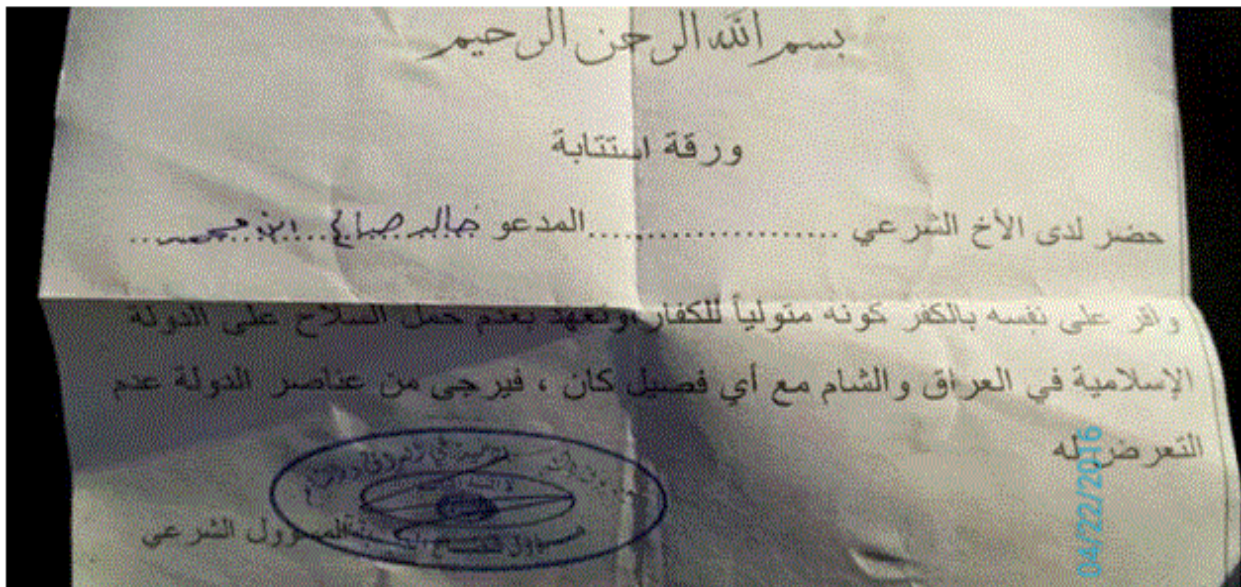 بسم الله الرحمن الرحيم
ورقة استتابة
حضر لدى الأخ الشرعي ....................المدعو خالد صباغ ابن محمد
واقر على نفسه بالكفر كونه متولياً للكفار وتعهد بعدم حمل السلاح على الدولة
الإسلامية في العراق والشام مع أي فصيل كان ، فيرجى من عناصر الدولة عدم
التعرض له
المسؤول الشرعي
04/22/2016